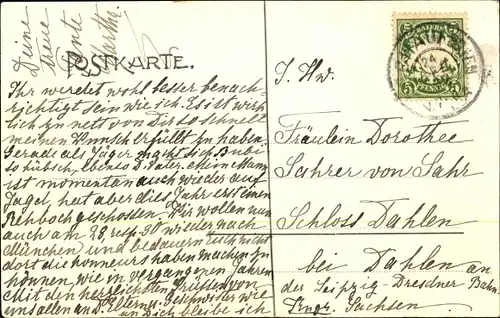 Deine
treue
Tante
Martha.
POSTKARTE.
Ihr werdet wohl besser benach-
richtigt sein wie ich. Es ist wirk-
lich zu nett von Dir so schnell
meinen Wunsch erfüllt zu haben.
Gerade als Jäger macht sich Bubi
so hübsch, ebenso D. Vater. Mein Mann
ist momentan auch wieder auf
Jagd, hat aber dies Jahr erst einen
Rehbock geschossen. Wir wollen nun
auch am 28. resp. 30 wieder nach
München und bedauern Euch nicht
dort die honneurs haben machen zu
können, wie in vergangenen Jahren
Mit den herzlichsten Grüssen von
uns allen an D. Eltern u. Geschwister wie
an Dich bleibe ich
BAYERN
5 5
I. Hw.
Fräulein Dorothee
Sahrer von Sahr
Schloss Dahlen
bei Dahlen an
der Leipzig-Dresdner Bahn.
Kngr. Sachsen.